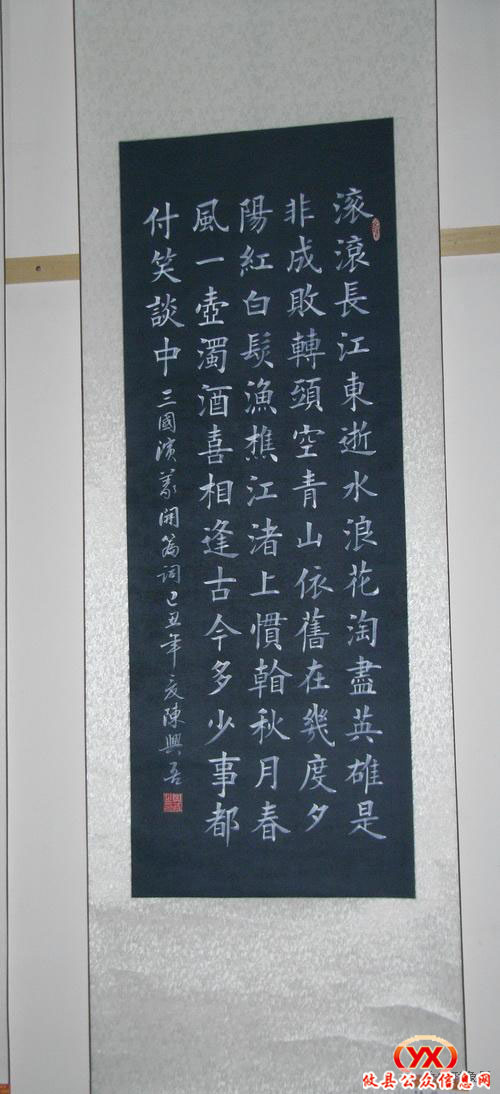 滚滾長江東逝水浪花淘盡英雄是
非成敗轉頭空青山依舊在幾度夕
陽紅白髮漁樵江渚上慣看秋月春
風一壺濁酒喜相逢古今多少事都
付笑談中 三國演義開篇詞己丑年夏陳興吾
YX
攸县公众信息网